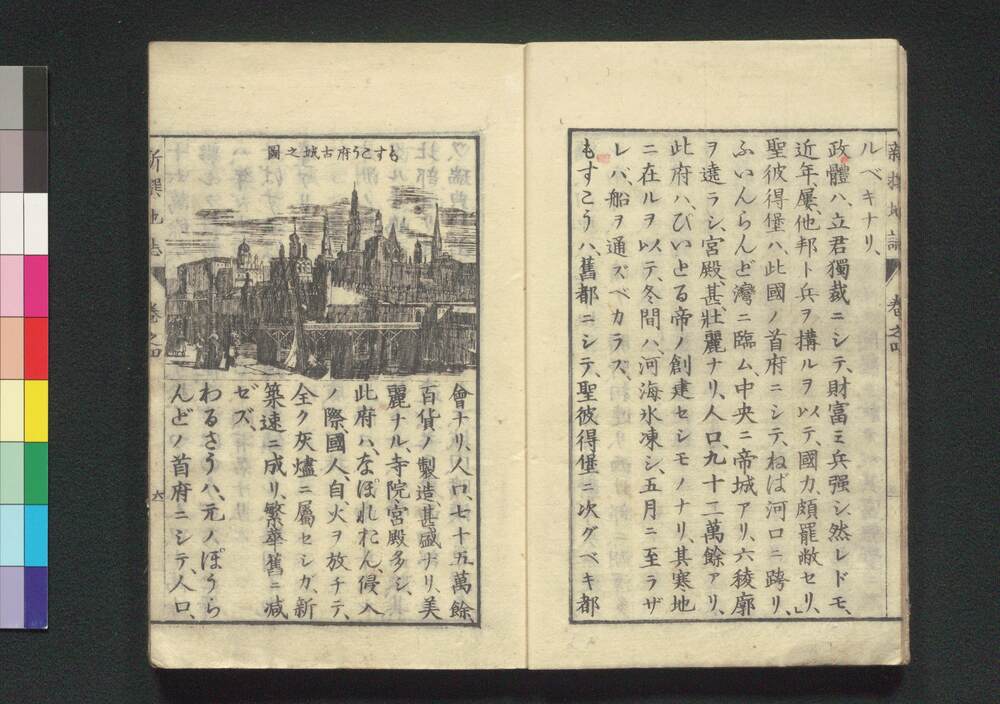 ルベキナリ、
政體ハ、立君獨裁ニシテ、財富ミ兵强シ然レドモ、
近年、屢、他邦ト兵ヲ搆ルヲ以テ、國力、頗罷敝セリ、
聖彼得堡ハ、此國ノ首府ニシテ、ねば河口ニ跨リ、
ふいんらんど灣ニ臨ム、中央ニ帝城アリ、六稜廓
ヲ遶ラシ、宮殿、甚、壯麗ナリ、人口、九十二萬餘アリ、
此府ハ、びいとる帝ノ創建セシモノナリ、其寒地
ニ在ルヲ以テ、冬間ハ、河海氷凍シ、五月ニ至ラザ
レバ、船ヲ通ズベカラズ、
もすこうハ、舊都ニシテ、聖彼得堡ニ次グベキ都
もすこう府古城之圖
會ナリ、人口、七十五萬餘、
百貨ノ製造甚盛ナリ、美
麗ナル、寺院、宮殿多シ、
此府ハ、なぽれおん、侵入
ノ際、國人、自、火ヲ放チテ、
全ク灰燼ニ屬セシガ、新
築速ニ成リ、繁華舊ニ減
ゼズ、
わるさうハ、元ノぽうら
んどノ首府ニシテ、人口、
新撰地誌
卷之四
六